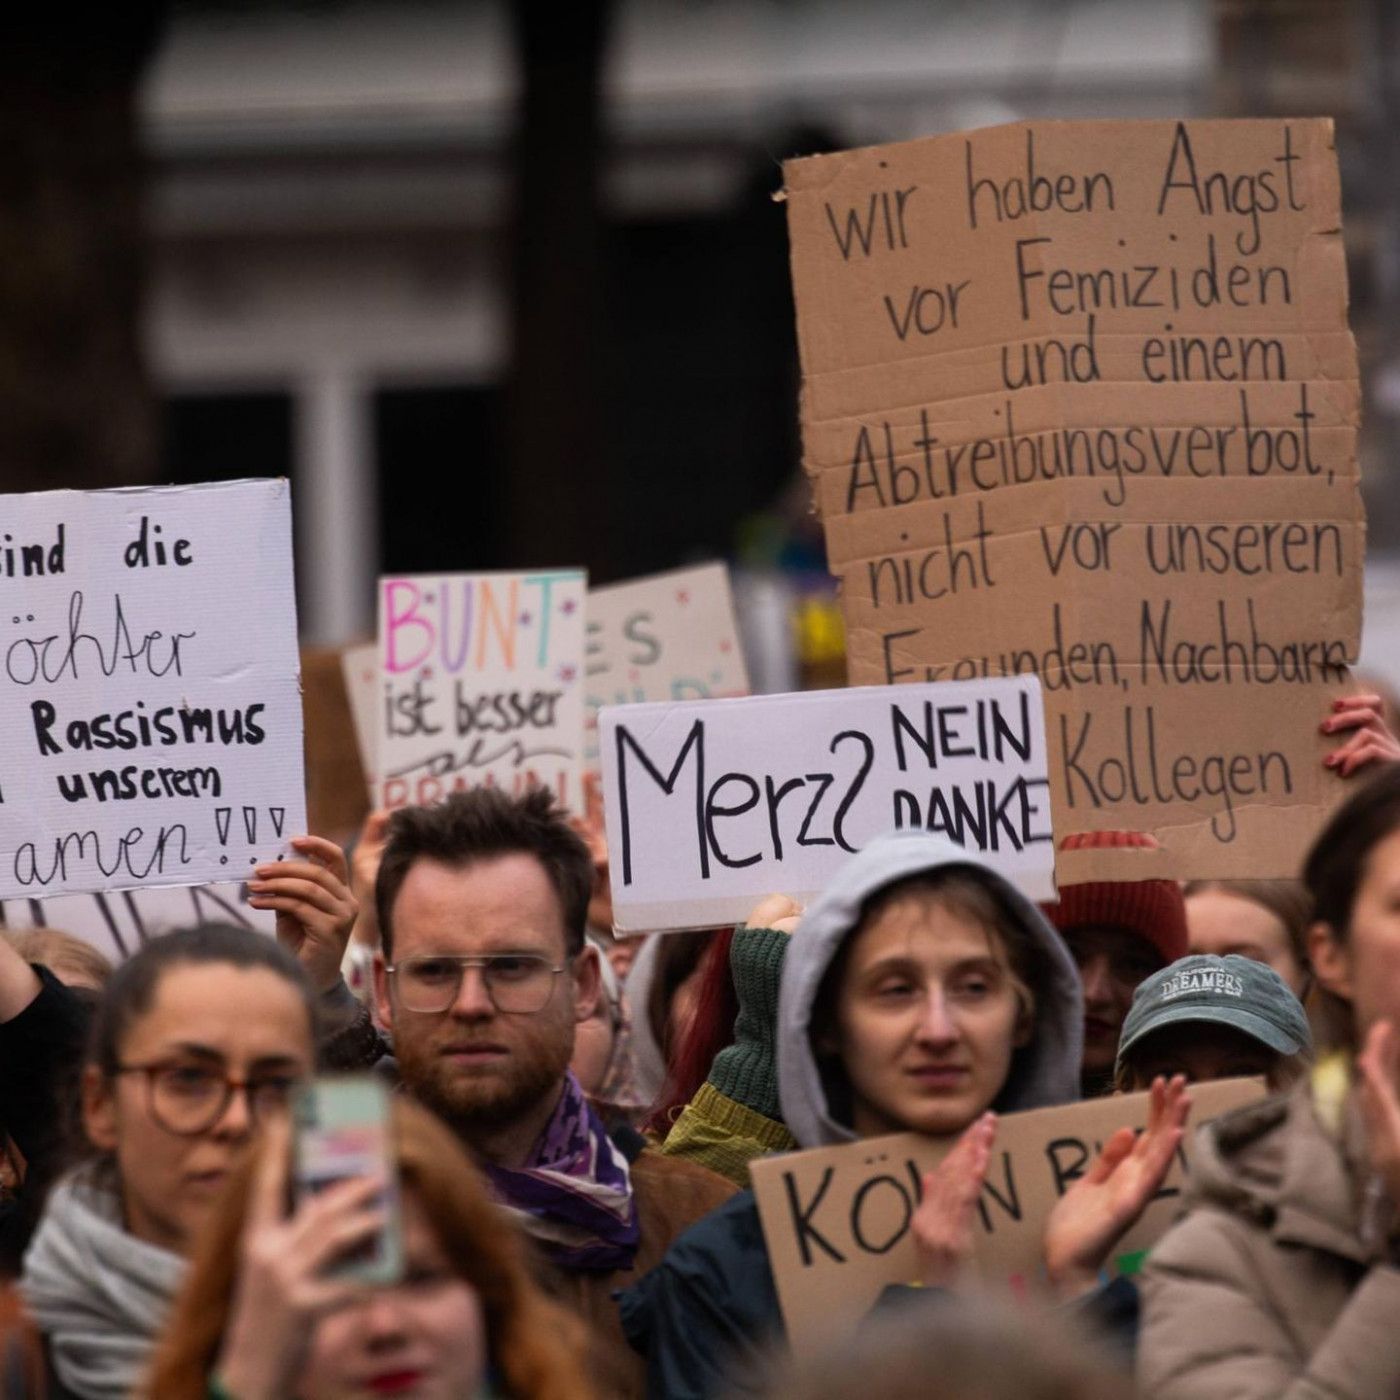 wir haben Angst
vor Femiziden
und einem
Abtreibungsverbot,
nicht vor unseren
Freunden, Nachbarn
Kollegen
die
Rassismus
unserem
!!!
BUNT
ist besser
als
BRAUN
ES
Merz? NEIN
DANKE
KÖLN
CALIFORNIA
DREAMERS